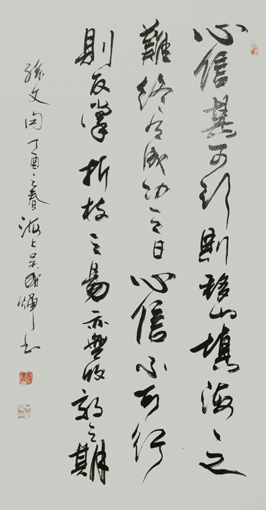 心信其可行則移山填海之
難終有成功之日心信不可行
則反掌折枝之易亦無收效之期
孫文句丁酉之春海上吴成輝书